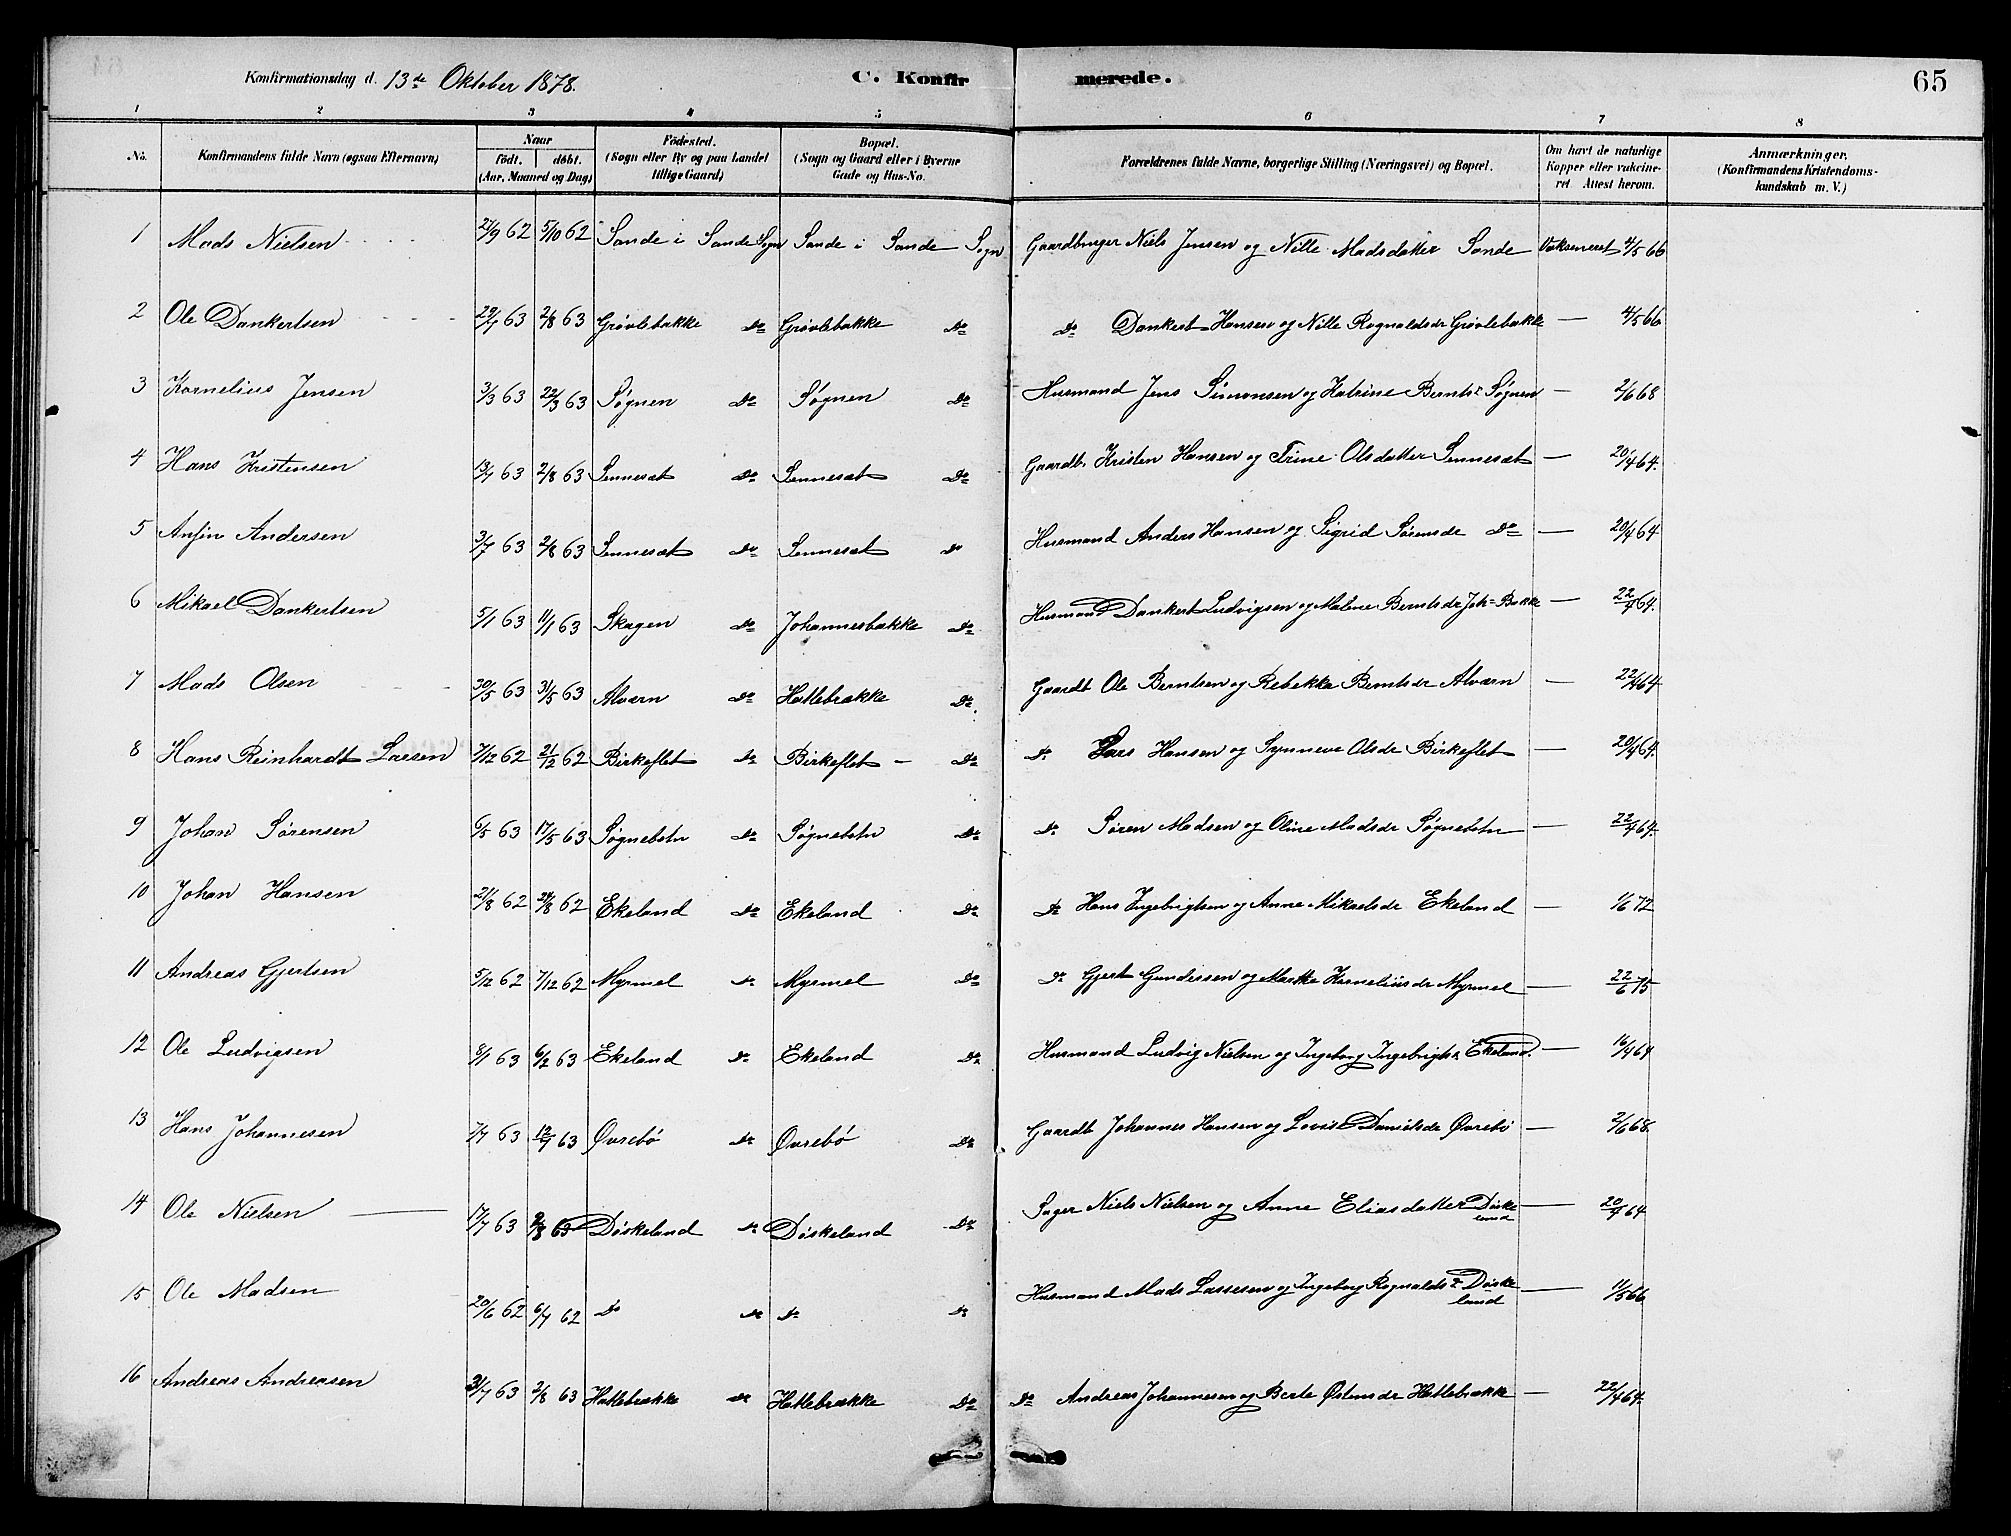 65
Konfirmationsdag d. 13de Oktober 1878.
C. Konfirmerede.
1 2 3 4 5 6 7 8
No. Konfirmandens fulde Navn (ogsaa Efternavn) Naar født. døbt. (Aar, Maaned og Dag) Fødested. (Sogn eller By og paa Landet tillige Gaard) Bopæl. (Sogn og Gaard eller i Byerne Gade og Hus-No. Forældrenes fulde Navne, borgerlige Stilling (Næringsvei) og Bopæl. Om havt de naturlige Kopper eller vakcineret Attest herom. Anmærkninger, (Konfirmandens Kristendomskundskab m. V.)
1 Mads Nielsen 27/9 62 5/10 62 Sande i Sande Sogn Sande i Sande Sogn Gaardbruger Niels Jensen og Nille Madsdatter Sande Vaksineret 4/5 66
2 Ole Dankertsen 29/7 63 2/8 63 Grøvlebakke Do Grøvlebakke Do Do Dankert Hansen og Nille Rognaldsdr Grøvlebakke — 4/5 66
3 Kornelius Jensen 3/3 63 22/3 63 Søgnen Do Søgnen Do Husmand Jens Simonsen og Katrine Berntsr Søgnen — 2/6 68
4 Hans Kristensen 13/7 63 2/8 63 Sennesæt Do Sennesæt Do Gaardb. Kristen Hansen og Trine Olsdatter Sennesæt — 20/4 64.
5 Anfin Andersen 3/7 63 2/8 63 Sennesæt Do Sennesæt Do Husmand Anders Hansen og Sigrid Sørensdr Do — 20/4 64
6 Mikael Dankertsen 5/1 63 11/1 63 Skagen Do Johannesbakke Do Husmand Dankert Ludvigsen og Malene Berntsdr Joh=Bakke — 22/4 64.
7 Mads Olsen 30/5 63 31/5 63 Alværn Do Hatlebrække Do. Gaardb Ole Berntsen og Rebekka Berntsdr Alværn — 22/4 64
8 Hans Reinhardt Larsen 7/12 62 21/12 62 Birkeflet Do Birkeflet — Do Do Lars Hansen og Synneve Olsdr Birkeflet — 20/4 64.
9 Johan Sørensen 6/5 63 17/5 63 Søgnebotn Do Søgnebotn Do Do Søren Madsen og Oline Madsdr Søgnebotn — 22/4 64.
10 Johan Hansen 21/8 62 24/8 62 Ekeland Do Ekeland Do Do Hans Ingebrigtsen og Anne Mikaelsdr Ekeland — 1/6 72
11 Andreas Gjertsen 5/12 62 7/12 62 Myrmel Do Myrmel Do Do Gjert Gundersen og Marthe Korneliusdr Myrmel — 22/6 75
12 Ole Ludvigsen 8/1 63 6/2 63 Ekeland Do Ekeland Do Husmand Ludvig Nielsen og Ingeborg Ingebrigtsr Ekeland. — 16/4 64
13 Hans Johannesen 7/7 63 12/7 63 Øvrebø Do Øvrebø Do Gaardb Johannes Hansen og Lovise Danielsdr Øvrebø — 2/6 68.
14 Ole Nielsen 17/7 63 2/8 63 Døskeland Do Døskeland Do Niels Nielsen og Anne Eliasdatter Døskeland — 20/4 64
15 Ole Madsen 20/6 62 6/7 62 Do Do Do Do Husmand Mads Lassesen og Ingeborg Rognaldsr Døskeland — 11/5 66
16 Andreas Andreasen 31/7 63 2/8 63 Hatlebrække Do Hatlebrække Do Do Andreas Johannesen og Berte Hatlebrække — 22/4 64.